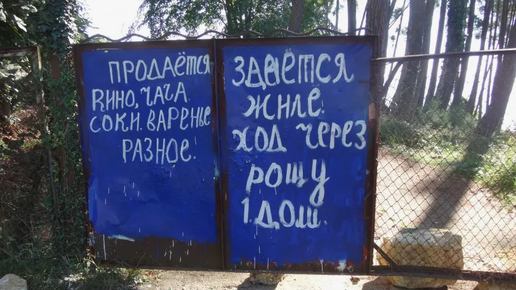 ПРОДАЁТСЯ
ВИНО, ЧАЧА.
СОКИ. ВАРЕНЬЕ
РАЗНОЕ.
ЗДАЁТСЯ
ЖИЛЕ.
ХОД ЧЕРЕЗ
РОЩУ
1. ДОМ.